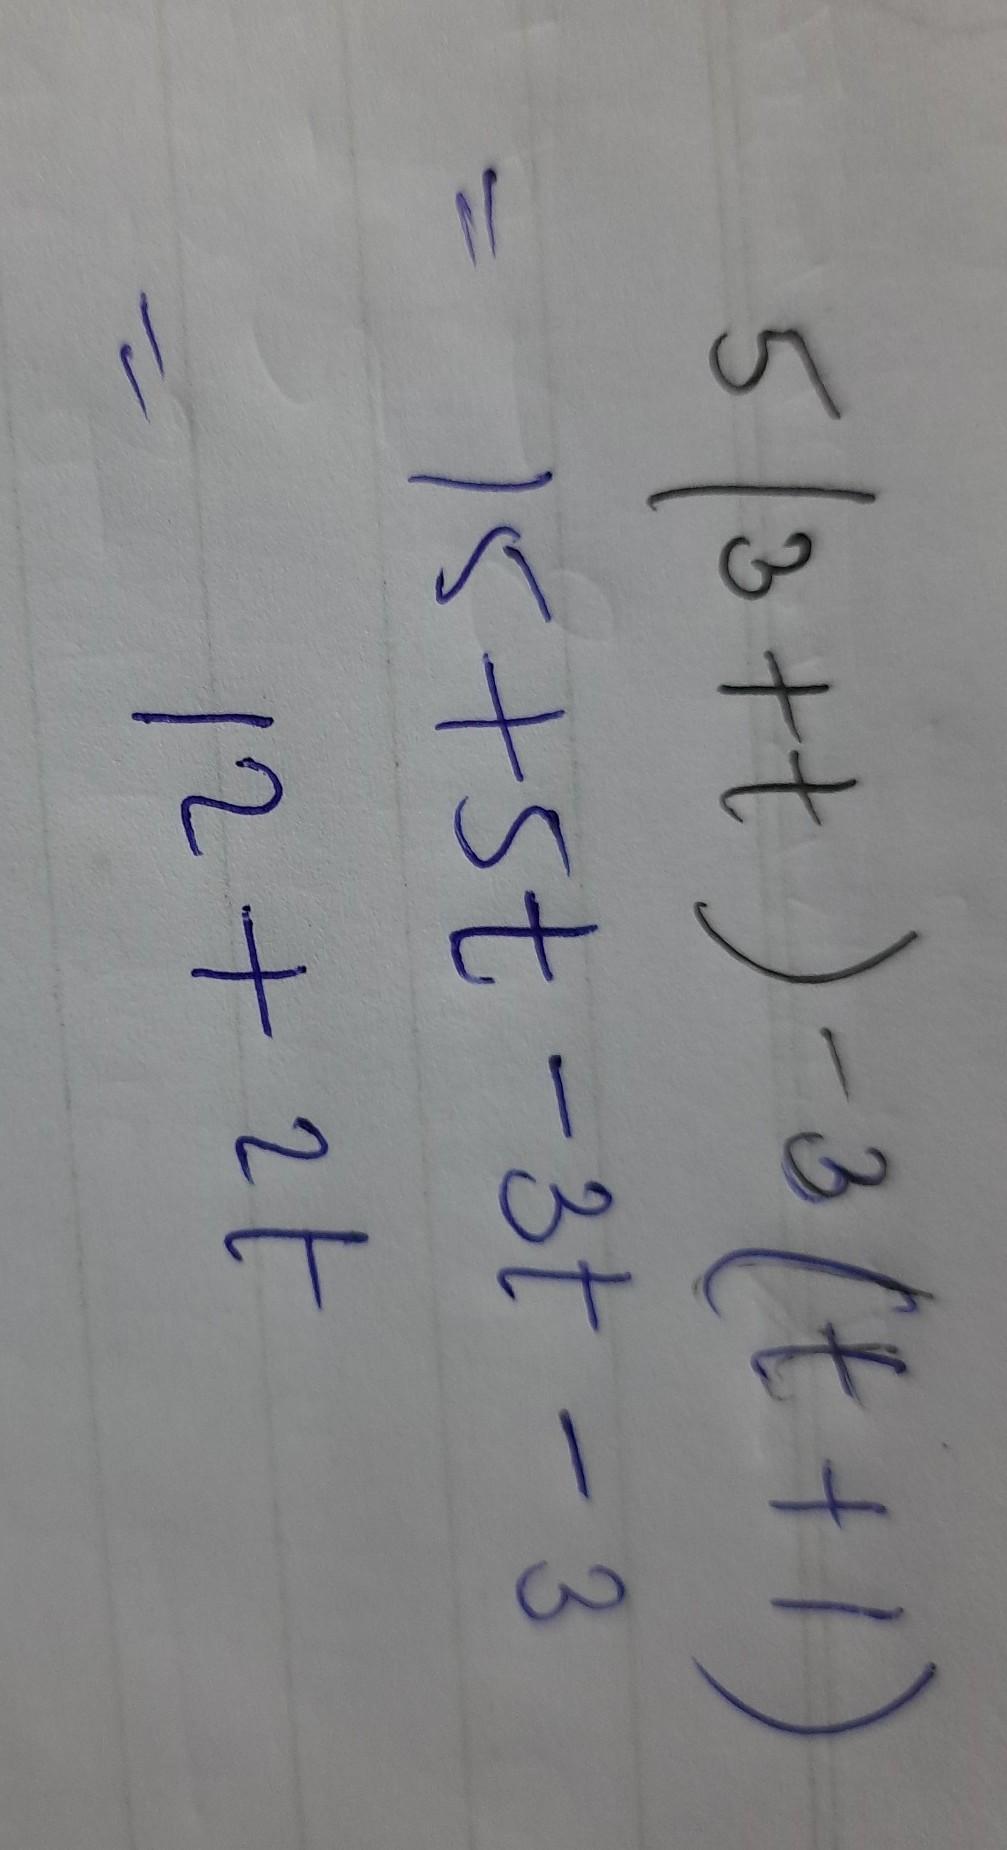 5(3+t)-3(t+1)
= 15+5t-3t-3
= 12+2t